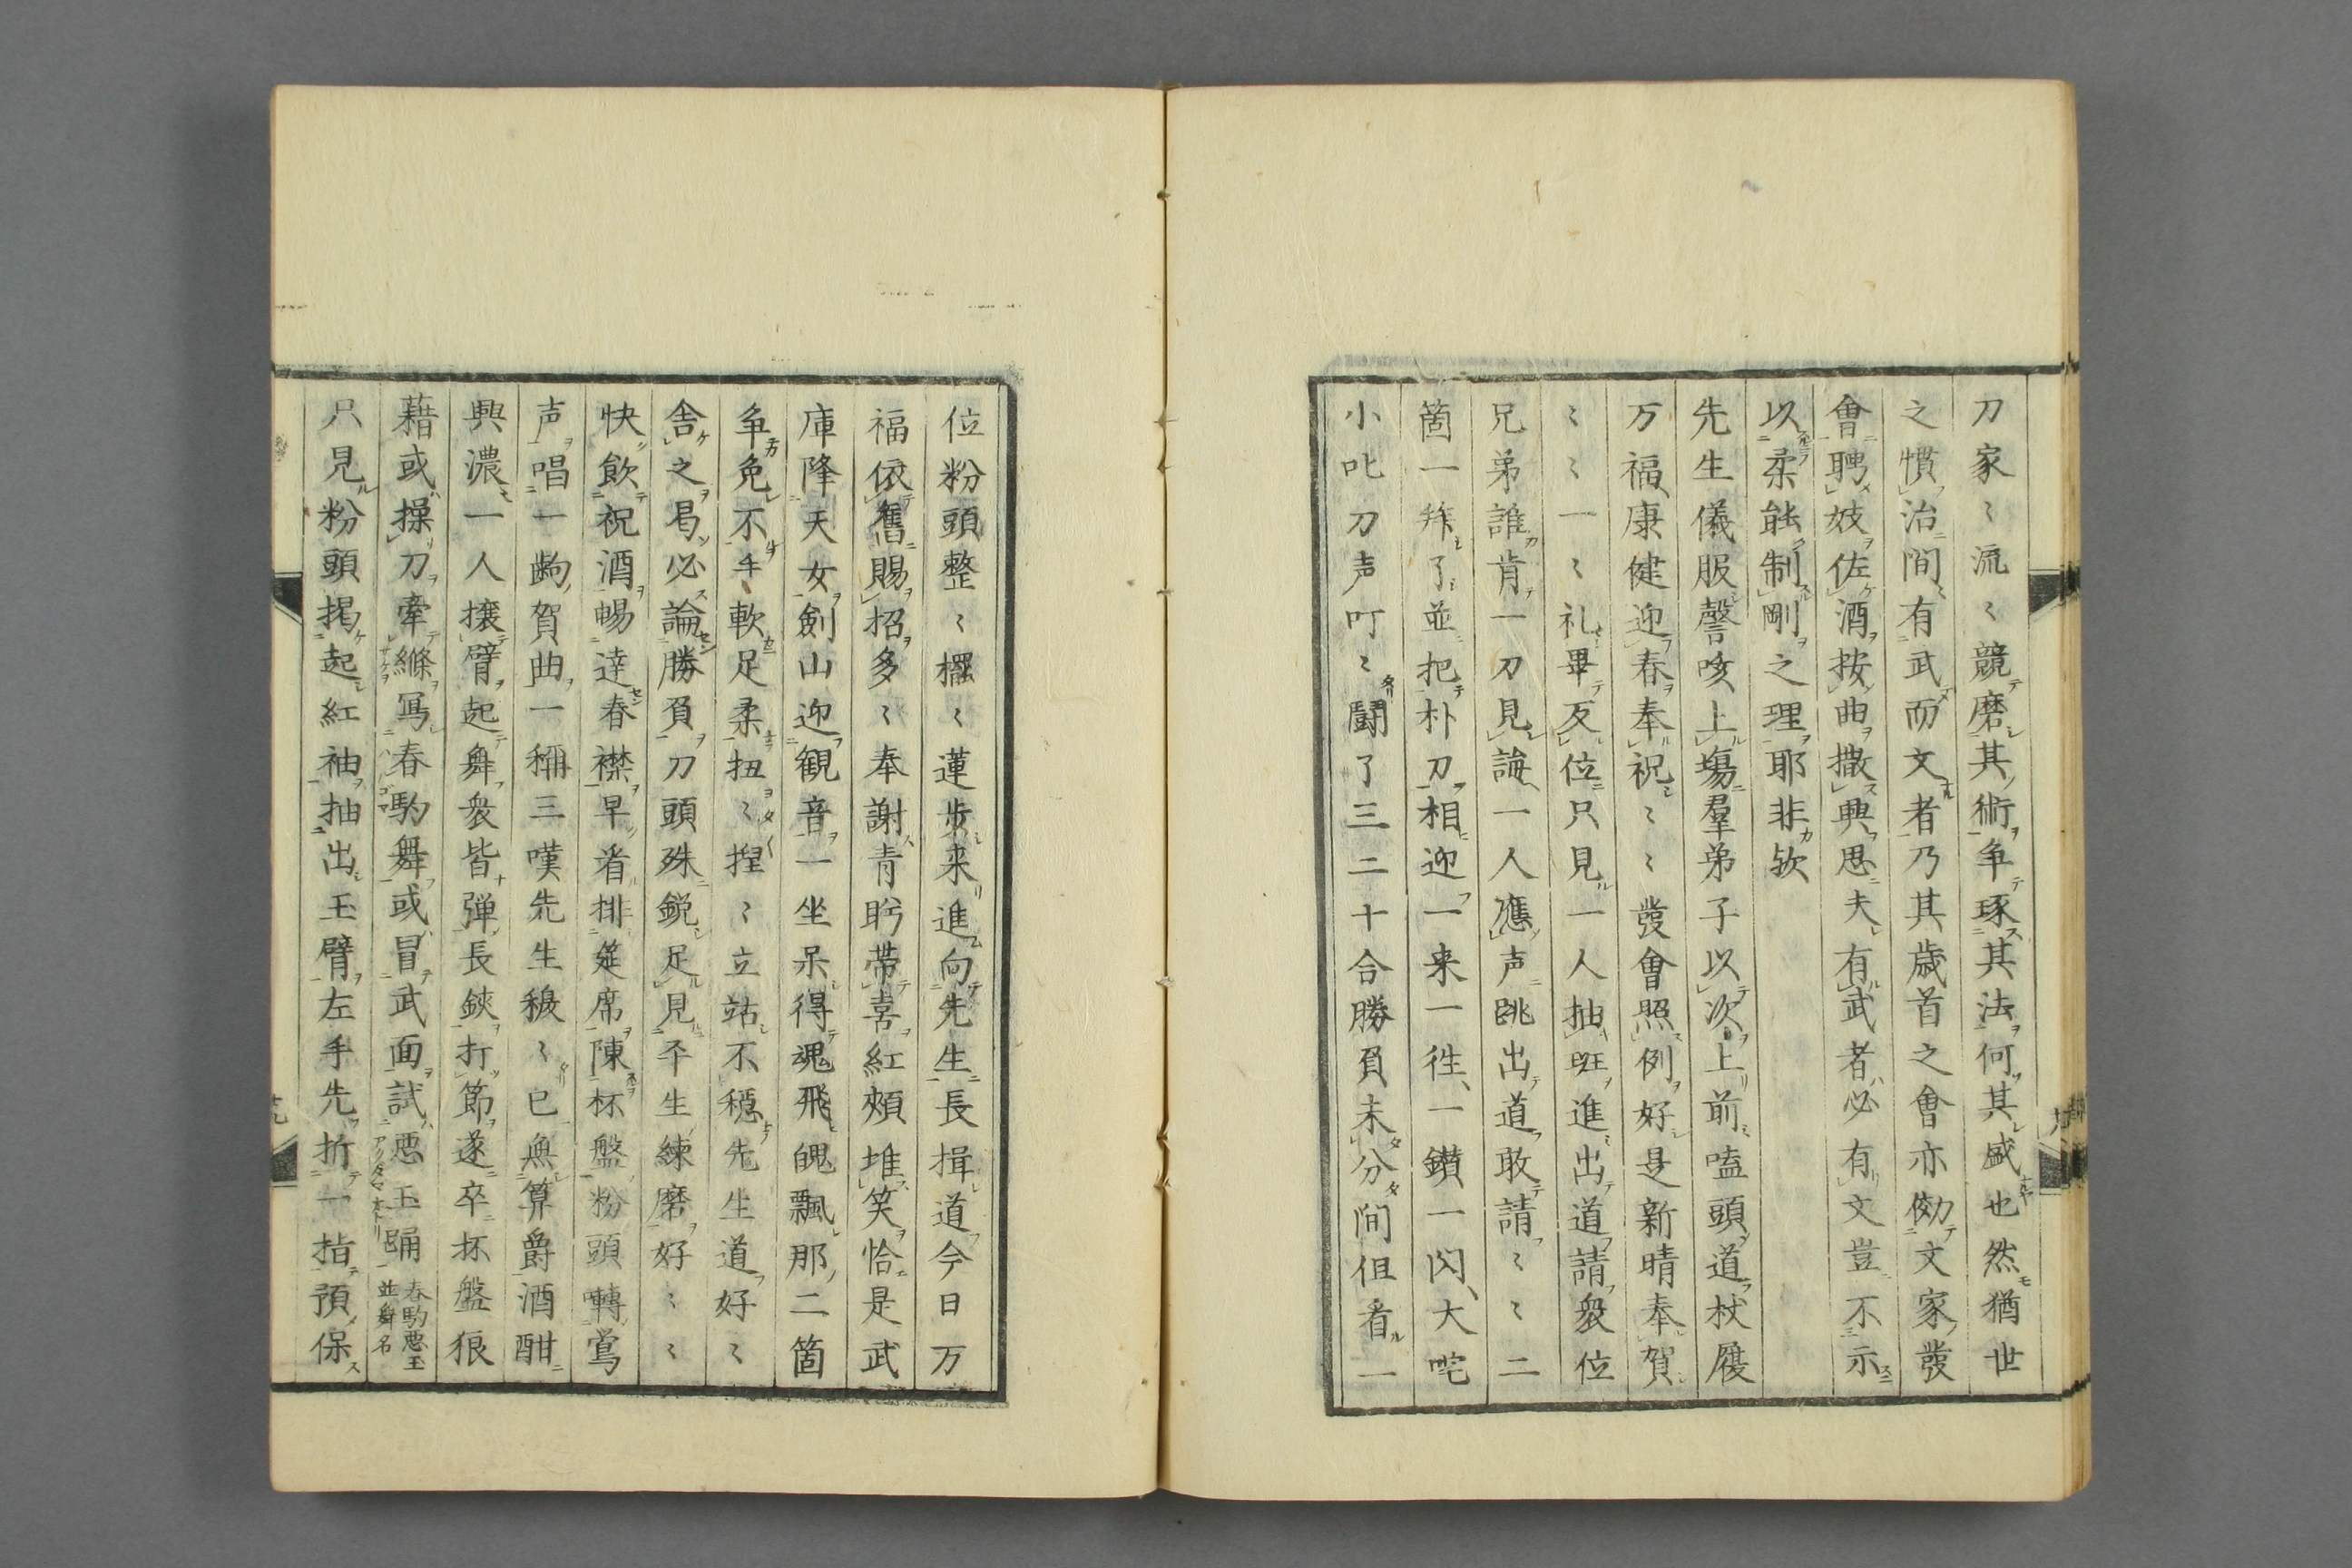 刀家〻流〻競磨其術争琢其法何其盛也然猶世
之慣治間有武而文者乃其歳首之會亦倣文家發
會聘妓佐酒按曲撒興思夫有武者必有文豈不示
以柔能制剛之理耶非欤
先生儀服謦咳上塲羣弟子以次上前嗑頭道杖履
万福康健迎春奉祝〻〻發會照例好是新晴奉賀
〻〻一〻礼畢反位只見一人抽旺進出道請衆位
兄弟誰肯一刀見誨一人應声跳出道敢請〻〻二
箇一拜了並把朴刀相迎一来一徃一鑚一閃大咤
小叱刀声叮〻闘了三二十合勝負未分間但看一
位粉頭整〻擺〻蓮歩来進向先生長揖道今日万
福依舊賜招多〻奉謝青眄帯喜紅頰堆笑恰是武
庫降天女劍山迎観音一坐呆得魂飛魄飄那二箇
争免不手〻軟足柔扭〻捏〻立站不穏先生道好〻
舎之曷必論勝負刀頭殊鋭足見平生練磨好〻〻
快飲祝酒暢達春襟早着排筵席陳杯盤粉頭囀鴬
声唱一齣賀曲一稱三嘆先生稳〻已無算爵酒酣
興濃一人攘臂起舞衆皆弾長鋏打節遂卒杯盤狼
藉或操刀牽絛寫春駒舞或冒武面試悪玉踊春駒悪玉並舞名
只見粉頭掲起紅袖抽出玉臂左手先折一指預保